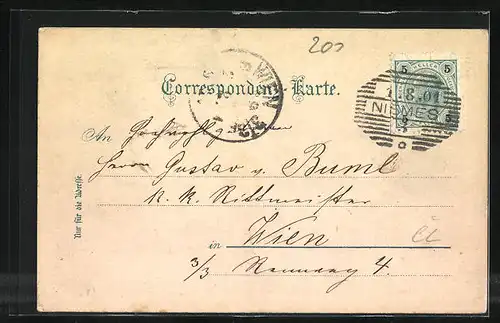 200
5 5
Correspondenz-Karte.
WIEN
1 8.01
NIEMES
An Hochwohlgeboren
Herrn Gustav v. Buml
k. k. Rittmeister
in Wien
3/3 Rennweg 4.
Nur für die Adresse.